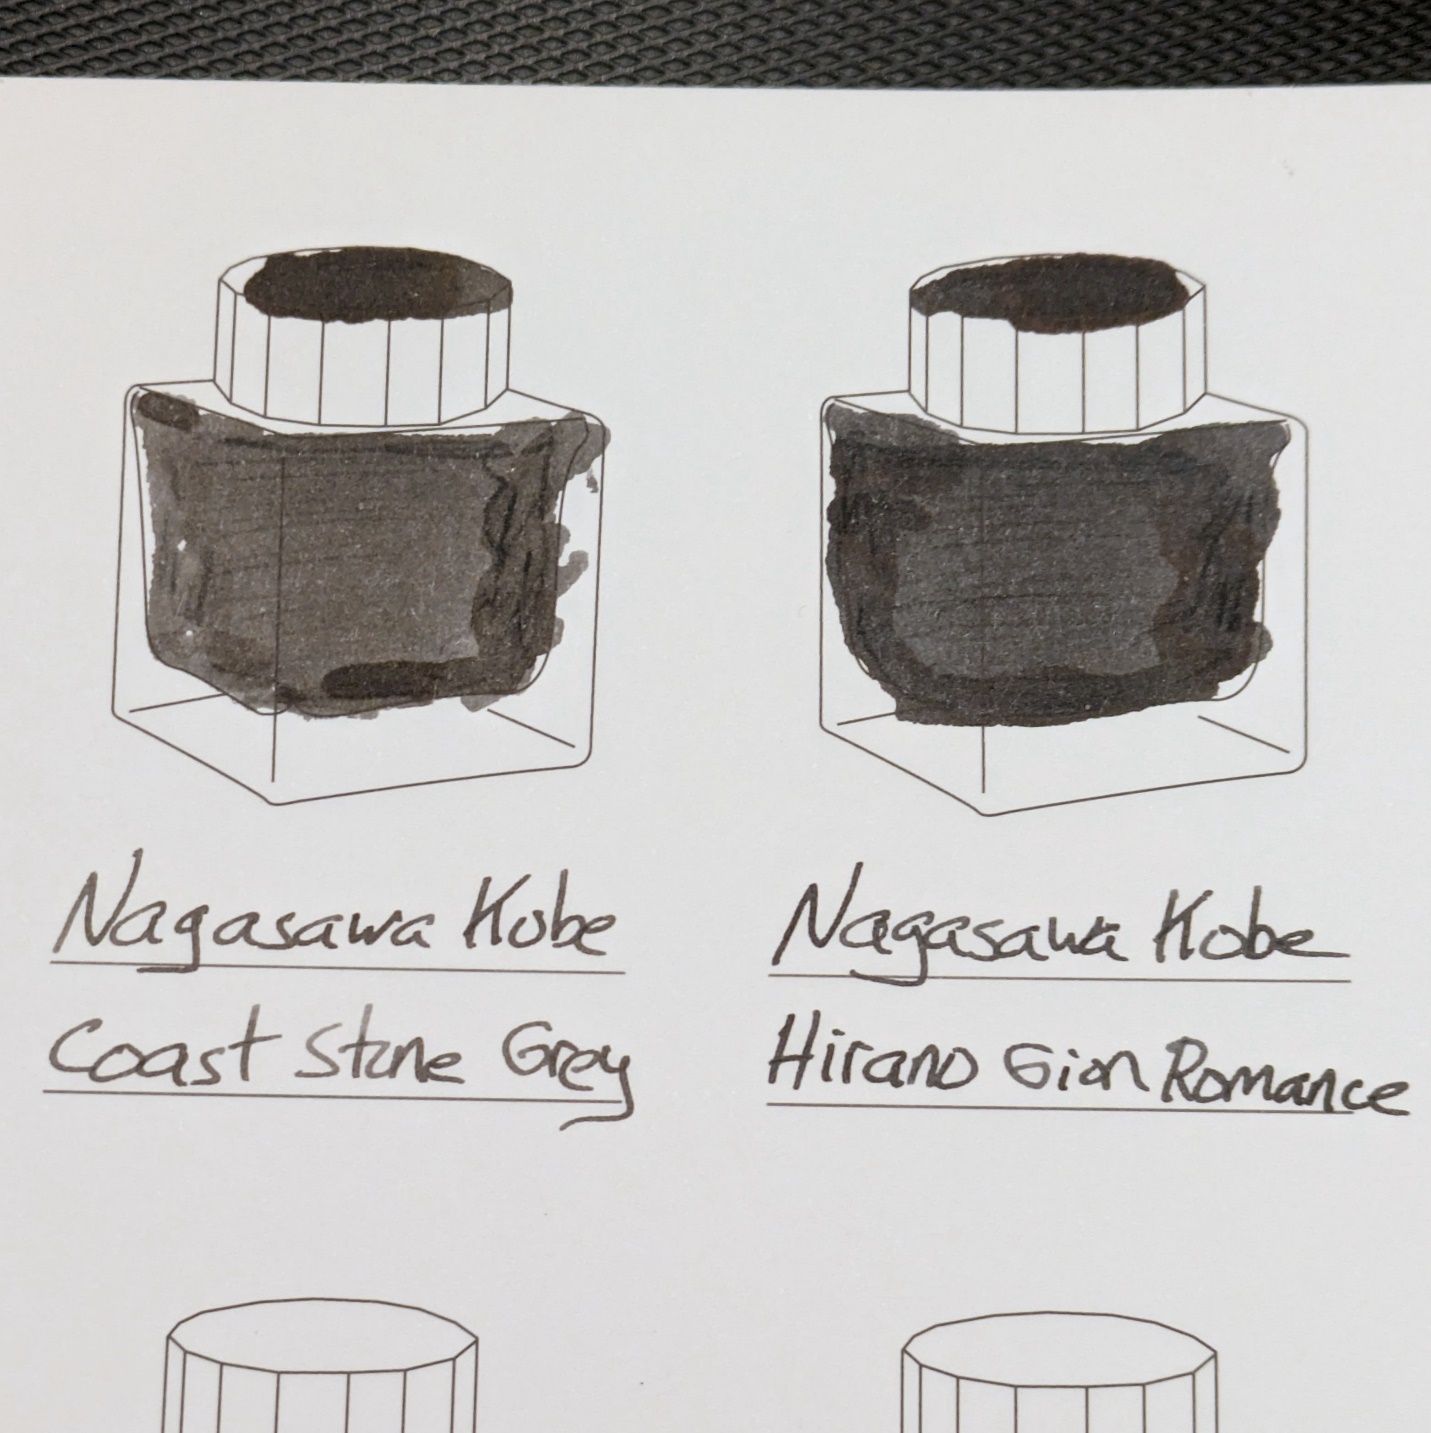 Nagasawa Kobe
Coast Stone Grey
Nagasawa Kobe
Hirano Gion Romance